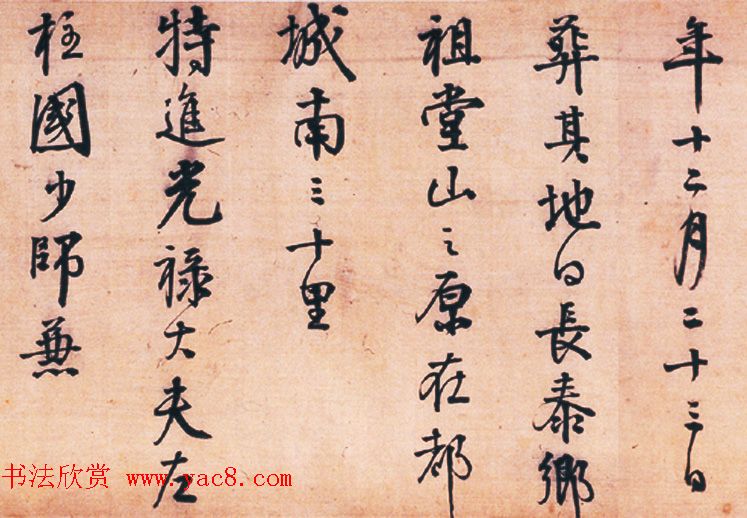 年十二月二十三日
葬其地曰長泰鄉
祖堂山之原在都
城南三十里
特進光祿大夫左
柱國少師兼
书法欣赏 www.yac8.com